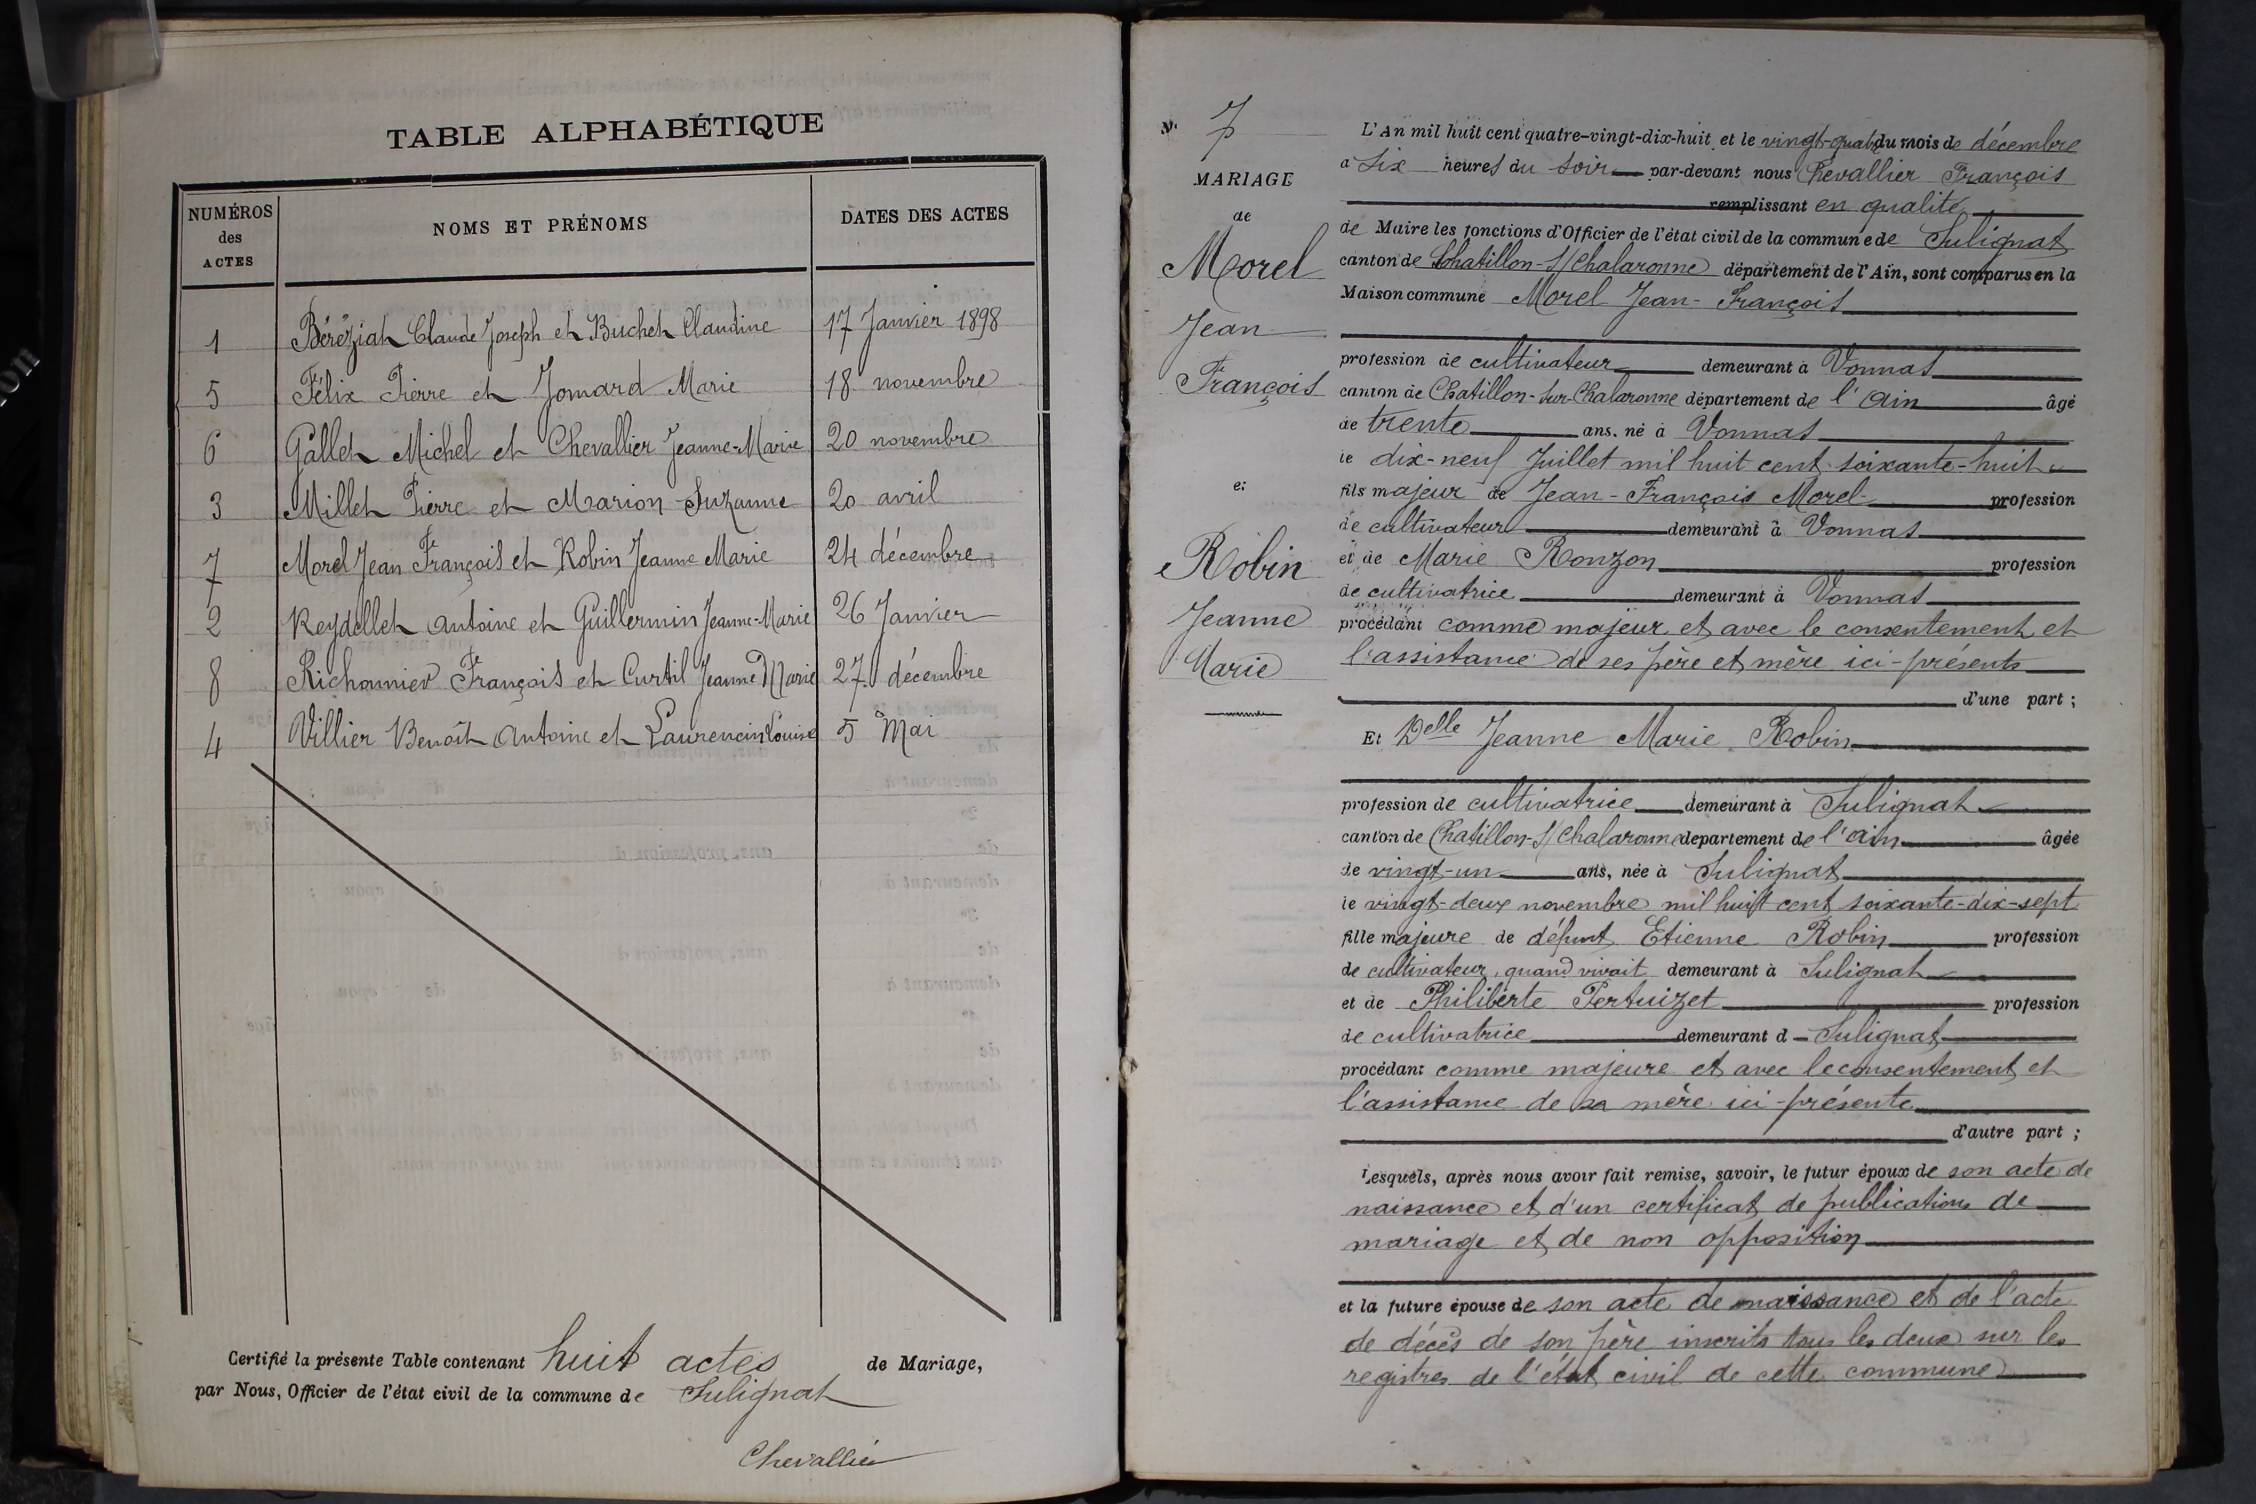 TABLE ALPHABÉTIQUE
NUMÉROS des ACTES
NOMS ET PRÉNOMS
DATES DES ACTES
1 Béréziat Claude Joseph et Buchet Claudine 17 Janvier 1898
5 Félix Pierre et Jomard Marie 18 novembre
6 Gallet Michel et Chevallier Jeanne-Marie 20 novembre
3 Millet Pierre et Marion Suzanne 20 avril
7 Morel Jean François et Robin Jeanne Marie 24 décembre
2 Reydellet Antoine et Guillermin Jeanne-Marie 26 Janvier
8 Richonnier François et Curtil Jeanne Marie 27 décembre
4 Villier Benoît Antoine et Laurencin Louise 5 Mai
Certifié la présente Table contenant huit actes de Mariage,
par Nous, Officier de l'état civil de la commune de Sulignat
Chevallier
N. 7
MARIAGE
de
Morel
Jean
François
et
Robin
Jeanne
Marie
L'An mil huit cent quatre-vingt-dix-huit et le vingt-quatre du mois de décembre
a six heures du soir par-devant nous Chevallier François
remplissant en qualité
de Maire les fonctions d'Officier de l'état civil de la commune de Sulignat
canton de Chatillon-s/Chalaronne département de l'Ain, sont comparus en la
Maison commune Morel Jean-François
profession de cultivateur demeurant à Vonnas
canton de Chatillon-sur-Chalaronne département de l'Ain âgé
de trente ans, né à Vonnas
le dix-neuf Juillet mil huit cent soixante-huit
fils majeur de Jean-François Morel profession
de cultivateur demeurant à Vonnas
et de Marie Ronzon profession
de cultivatrice demeurant à Vonnas
procédant comme majeur et avec le consentement et
l'assistance de ses père et mère ici-présents
d'une part ;
Et Delle Jeanne Marie Robin
profession de cultivatrice demeurant à Sulignat
canton de Chatillon-s/Chalaronne departement de l'ain âgée
de vingt-un ans, née à Sulignat
le vingt-deux novembre mil huit cent soixante-dix-sept
fille majeure de défunt Etienne Robin profession
de cultivateur, quand vivait demeurant à Sulignat
et de Philiberte Pertuizet profession
de cultivatrice demeurant à Sulignat
procédant comme majeure et avec le consentement et
l'assistance de sa mère ici-présente
d'autre part ;
Lesquels, après nous avoir fait remise, savoir, le futur époux de son acte de
naissance et d'un certificat de publications de
mariage et de non opposition
et la future épouse de son acte de naissance et de l'acte
de décès de son père inscrits tous les deux sur les
registres de l'état civil de cette commune